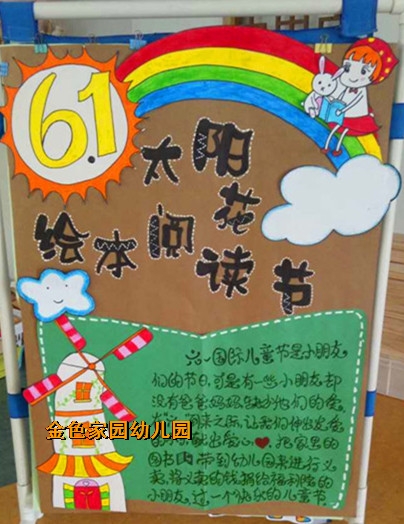 6.1
太阳花
绘本阅读节
六一国际儿童节是小朋友
们的节日,可是有一些小朋友却
没有爸爸妈妈在他们的爱
来之际,让我们伸出
献出爱心❤,把家里的
图书 带到幼儿园来进行义
卖,将义卖的钱捐给福利院的
小朋友,过一个快乐的儿童节
金色家园幼儿园